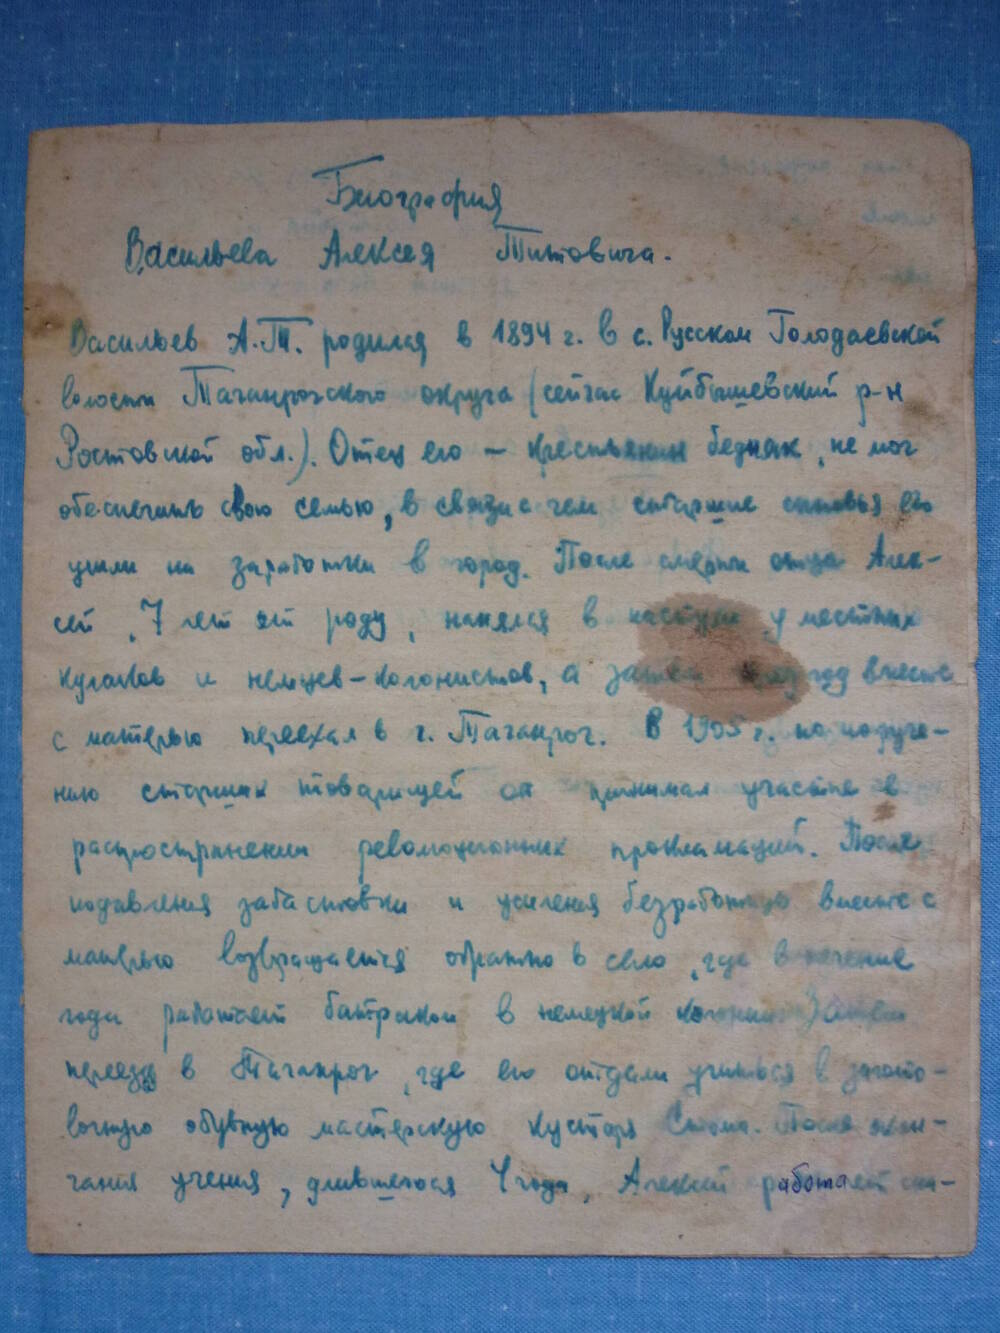 Биография
Васильева Алексея Титовича.
Васильев А.Т. родился в 1894 г. в с. Русском Голодаевской
волости Таганрогского округа (сейчас Куйбышевский р-н
Ростовской обл.). Отец его – крестьянин бедняк, не мог
обеспечить свою семью, в связи с чем старшие сыновья его
ушли на заработки в город. После смерти отца Алек-
сей, 7 лет от роду, нанялся в пастухи у местных
кулаков и немцев-колонистов, а затем через год вместе
с матерью переехал в г. Таганрог. В 1905 г. по поруче-
нию старших товарищей он принимал участие в
распространении революционных прокламаций. После
подавления забастовки и усиления безработицы вместе с
матерью возвращается обратно в село, где в течение
года работает батраком в немецкой колонии. Затем
переезд в Таганрог, где его отдали учиться в загото-
вочную обувную мастерскую кустаря После окон-
чания учения, длившегося 4 года, Алексей работает